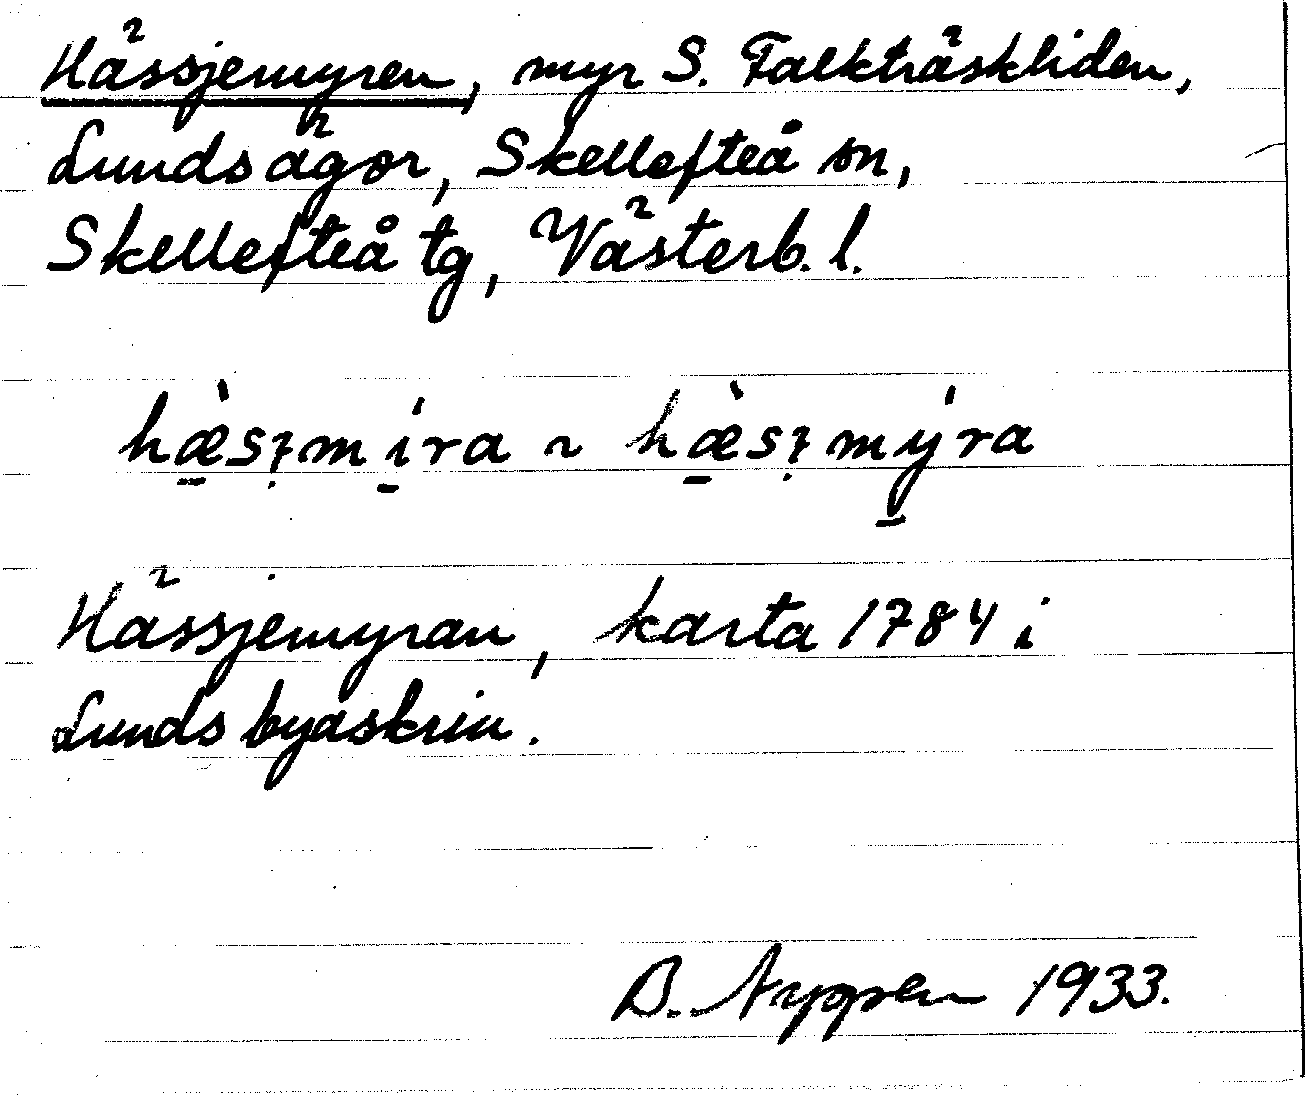 Hässjemyren, myr S. Falkträskliden,
Lunds ägor, Skellefteå sn,
Skellefteå tg, Västerb. l.
hæ̀sɟmíra ~ hæ̀sɟmýra
Hässjemyran, karta 1784 i
Lunds byaskrin.
B. 1933.